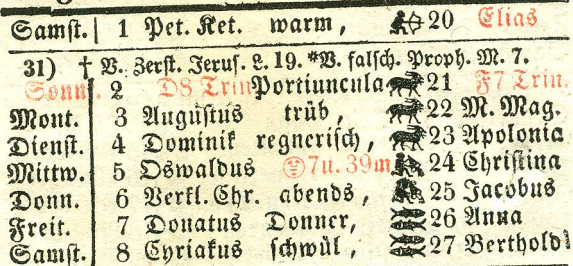 Samst. 1 Pet. Ket. warm, 20 Elias
31) † V. Zerst. Jerus. L. 19. *V. falsch. Proph. M. 7.
Sonn. 2 D8 Trin Portiuncula 21 F7 Trin.
Mont. 3 Augustus trüb, 22 M. Mag.
Dienst. 4 Dominik regnerisch, 23 Apolonia
Mittw. 5 Oswaldus 7u. 39m 24 Christina
Donn. 6 Verkl. Chr. abends, 25 Jacobus
Freit. 7 Donatus Donner, 26 Anna
Samst. 8 Cyriakus schwül, 27 Berthold